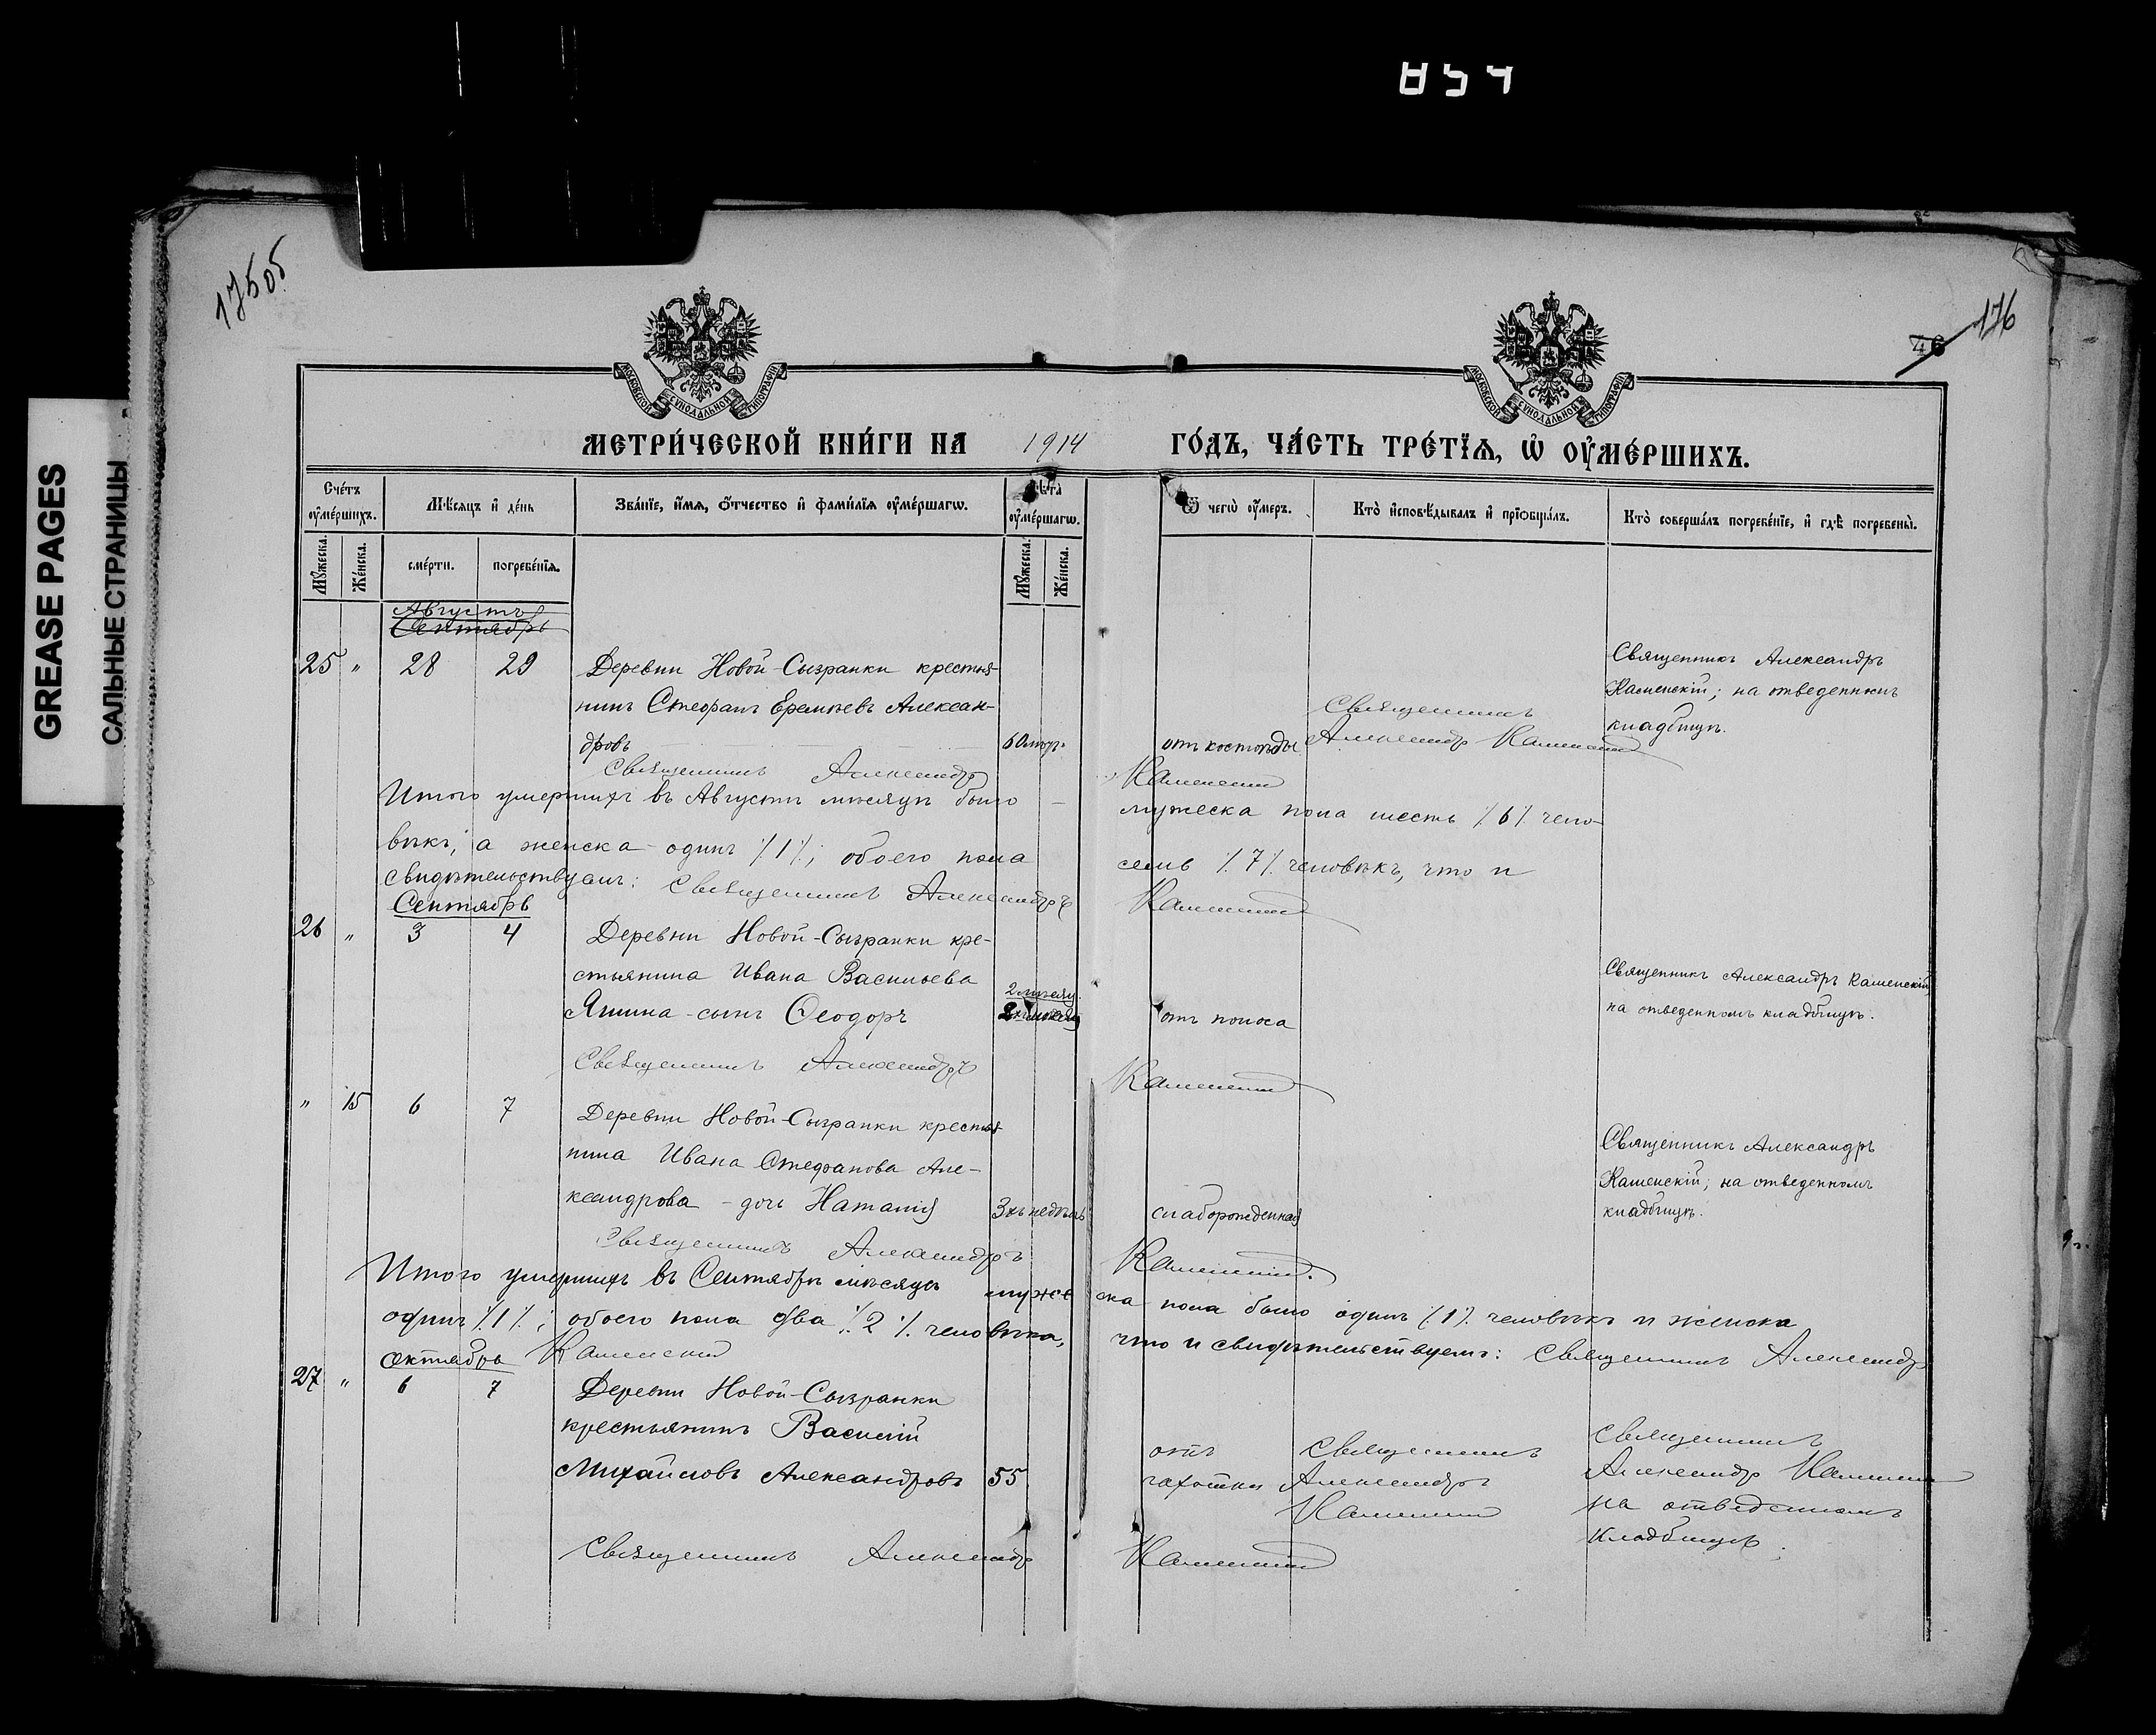 854
GREASE PAGES
САЛЬНЫЕ СТРАНИЦЫ
175об.
46 176
МОСКОВСКОЙ СУНОДАЛЬНОЙ ТИПОГРАФІИ
МОСКОВСКОЙ СУНОДАЛЬНОЙ ТИПОГРАФІИ
МЕТРИ́ЧЕСКОЙ КНИ́ГИ НА 1914 ГО́ДЪ, ЧА́СТЬ ТРЕ́ТЇѦ, Ѡ҆ ОУ҆МЕ́РШИХЪ.
Сче́тъ оу҆ме́ршихъ.
Мѣ́сяцъ и҆ де́нь
Зва́нїе, и҆́мѧ, ѻ҆́тчество и҆ фами́лїѧ оу҆ме́ршагѡ.
Лѣ́та оу҆ме́ршагѡ.
Ѿ чегѡ̀ оу҆́меръ.
Кто̀ и҆сповѣ́дывалъ и҆ прїѻбща́лъ.
Кто̀ соверша́лъ погребе́нїе, и҆ гдѣ̀ погребены̀.
Мꙋ́жеска. Же́нска. сме́рти. погребе́нїѧ. Мꙋ́жеска. Же́нска.
Августъ
Сентябрь
25 " 28 29 Деревни Новой-Сызранки крестья-
нинъ Стефанъ Еремѣевъ Алексан-
дровъ 60 отъ костоѣды
Священникъ Александръ Каменскій
Священникъ Александръ
Каменскій; на отведенномъ
кладбищѣ.
Священникъ Александръ Каменскій
Итого умершихъ въ Августѣ мѣсяцѣ было мужеска пола шесть /6/ чело-
вѣкъ, а женска одинъ /1/; обоего пола семь /7/ человѣкъ, что и
свидѣтельствуемъ: Священникъ Александръ Каменскій
Сентябрь
26 " 3 4 Деревни Новой-Сызранки кре-
стьянина Ивана Васильева
Яшина-сынъ Ѳеодоръ 2 мѣсяц. отъ поноса
Священникъ Александръ Каменскій
на отведенномъ кладбищѣ.
Священникъ Александръ Каменскій
" 15 6 7 Деревни Новой-Сызранки крестья-
нина Ивана Стефанова Але-
ксандрова - дочь Наталія 3хъ недѣль слаборожденная
Священникъ Александръ
Каменскій; на отведенномъ
кладбищѣ.
Священникъ Александръ Каменскій.
Итого умершихъ въ Сентябрѣ мѣсяцѣ мужеска пола было одинъ /1/ человѣкъ и женска
одинъ /1/; обоего пола два /2/ человѣка, что и свидѣтельствуемъ: Священникъ Александръ
Каменскій
Октябрь
27 " 6 7 Деревни Новой-Сызранки
крестьянинъ Василій
Михайловъ Александровъ 55
отъ
чахотки
Священникъ
Александръ
Каменскій
Священникъ
Александръ Каменскій
на отведенномъ
кладбищѣ.
Священникъ Александръ Каменскій